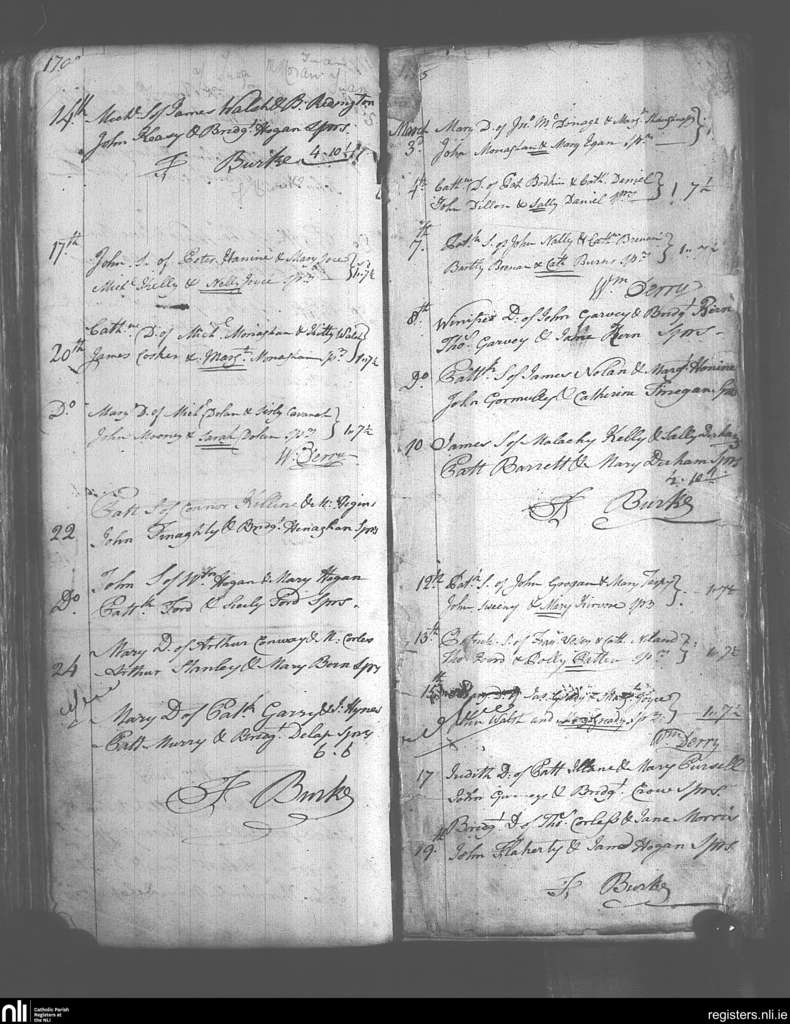 170
14th Mich.l S of James Walsh & B. Redington
John Keary & Bridg.t Hogan Sprs.
F Burke 4-10½
17th John S. of Peter Hanine & Mary Joce
Mich.l Kelly & Nelly Joyce sp.rs 1"7½
Cath.ne D. of Mich.l Monaghan & Kitty Walsh
20th James Cosker & Marg.t Monaghan sp.rs 1"7½
Do Mary D. of Mich.l Dolan & Sisly Cavanah
John Mooney & Sarah Dolan sp.rs 1"7½
W. Derry
Patt S of Connor Killine & M. Higins
22 John Finaghty & Bridg.t Henaghan Sprs
John S of W.m Hogan & Mary Hogan
Do Patt.k Ford & Sicily Ford Sprs.
Mary D. of Arthur Conway & M. Corless
24 Arthur Stanley & Mary Born Sprs
Mary D of Pat.k Garry & J. Hynes
Patt Murry & Bridg.t Delap Sprs
6.6
F Burke
March Mary D. of Jn.o McDonagh & Marg.t
3d John Monaghan & Mary Egan sp.rs
4th Cath.ne D. of Pat Bodkin & Cath. Deniel
John Dillon & Sally Daniel sp.rs 1 7½
7th Pat.k S. of John Nally & Cath. Brenan
Bartly Brenan & Cath. Burns sp.rs 1"7½
W.m Derry
8th Winifred D. of John Garvey & Bridg.t Kern
Tho.s Garvey & Jane Kern Sprs.
Do Patt.k S of James Nolan & Marg.t Honine
John Gormully & Catherine Finegan Sprs
10 James S of Malachy Kelly & Sally Derham
Patt Barrett & Mary Derham Sprs
4.10½
F Burke
12th Pat.k S. of John Grogan & Mary
John Sweeny & Mary Kirwan sp.rs 1"7½
13th Patrick S. of & Cath. Noland
Tho.s & Dolly sp.rs 1"7½
15th D. of Jas. & Joyce
John Walsh and sp.rs 1"7½
W.m Derry
17 Judith D. of Patt & Mary Pursell
John & Bridg.t Crow Sprs.
Bridg.t D. of Tho.s Corless & Jane Morris
19th John Flaherty & Jane Hogan Sprs.
F Burke
nli Catholic Parish
Registers at
the NLI
registers.nli.ie